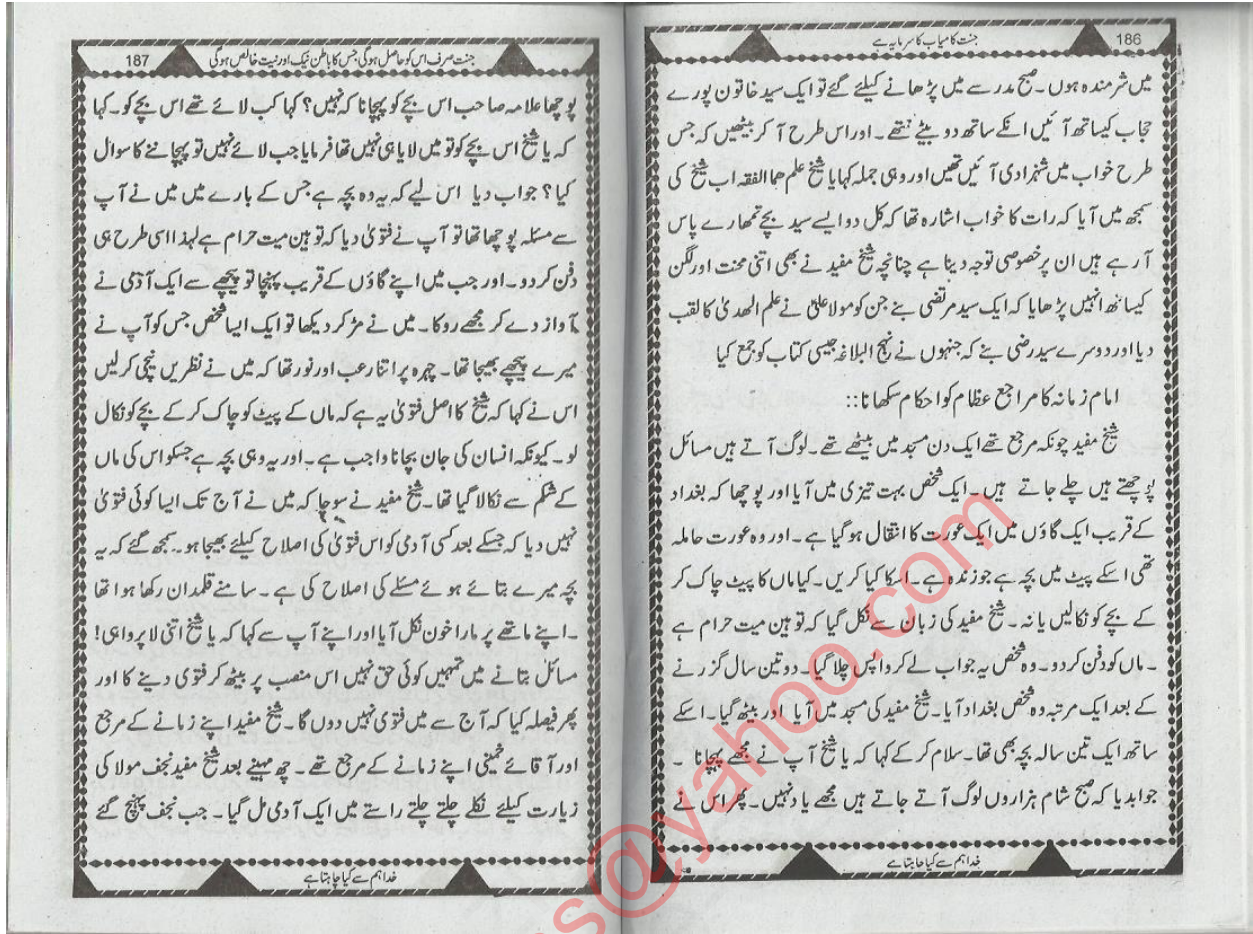 جنت کامیاب کا سرمایہ ہے
186
میں شرمندہ ہوں۔ صبح مدرسے میں پڑھانے کیلئے گئے تو ایک سید خاتون پورے
حجاب کیساتھ آئیں انکے ساتھ دو بیٹے تھے۔ اور اس طرح آ کر بیٹھیں کہ جس
طرح خواب میں شہزادی آئیں تھیں اور وہی جملہ کہا یا شیخ علم ھما الفقہ اب شیخ کی
سمجھ میں آیا کہ رات کا خواب اشارہ تھا کہ کل دو ایسے سید بچے تمھارے پاس
آ رہے ہیں ان پر خصوصی توجہ دینا ہے چنانچہ شیخ مفید نے بھی اتنی محنت اور لگن
کیساتھ انہیں پڑھایا کہ ایک سید مرتضی بنے جن کو مولا علیؑ نے علم الھدیٰ کا لقب
دیا اور دوسرے سید رضی بنے کہ جنہوں نے نہج البلاغہ جیسی کتاب کو جمع کیا
امام زمانہ کا مراجع عظام کو احکام سکھانا::
شیخ مفید چونکہ مرجع تھے ایک دن مسجد میں بیٹھے تھے۔ لوگ آتے ہیں مسائل
پوچھتے ہیں چلے جاتے ہیں۔ ایک شخص بہت تیزی میں آیا اور پوچھا کہ بغداد
کے قریب ایک گاؤں میں ایک عورت کا انتقال ہو گیا ہے۔ اور وہ عورت حاملہ
تھی اسکے پیٹ میں بچہ ہے جو زندہ ہے۔ اسکا کیا کریں۔ کیا ماں کا پیٹ چاک کر
کے بچے کو نکالیں یا نہ۔ شیخ مفید کی زبان سے نکل گیا کہ توہین میت حرام ہے
۔ ماں کو دفن کر دو۔ وہ شخص یہ جواب لے کر واپس چلا گیا۔ دو تین سال گزرنے
کے بعد ایک مرتبہ وہ شخص بغداد آیا۔ شیخ مفید کی مسجد میں آیا اور بیٹھ گیا۔ اسکے
ساتھ ایک تین سالہ بچہ بھی تھا۔ سلام کر کے کہا کہ یا شیخ آپ نے مجھے پہچانا ۔
جوابدیا کہ صبح شام ہزاروں لوگ آتے جاتے ہیں مجھے یاد نہیں۔ پھر اس نے
خدا ہم سے کیا چاہتا ہے
جنت صرف اس کو حاصل ہوگی جس کا باطن نیک اور نیت خالص ہوگی
187
پوچھا علامہ صاحب اس بچے کو پہچانا کہ نہیں؟ کہا کب لائے تھے اس بچے کو۔ کہا
کہ یا شیخ اس بچے کو تو میں لایا ہی نہیں تھا فرمایا جب لائے نہیں تو پہچاننے کا سوال
کیا؟ جواب دیا اس لیے کہ یہ وہ بچہ ہے جس کے بارے میں میں نے آپ
سے مسئلہ پوچھا تھا تو آپ نے فتویٰ دیا کہ توہین میت حرام ہے لہذا اسی طرح ہی
دفن کر دو۔ اور جب میں اپنے گاؤں کے قریب پہنچا تو پیچھے سے ایک آدمی نے
آواز دے کر مجھے روکا۔ میں نے مڑ کر دیکھا تو ایک ایسا شخص جس کو آپ نے
میرے پیچھے بھیجا تھا۔ چہرہ پر اتنا رعب اور نور تھا کہ میں نے نظریں نیچی کر لیں
اس نے کہا کہ شیخ کا اصل فتویٰ یہ ہے کہ ماں کے پیٹ کو چاک کر کے بچے کو نکال
لو۔ کیونکہ انسان کی جان بچانا واجب ہے۔ اور یہ وہی بچہ ہے جسکو اس کی ماں
کے شکم سے نکالا گیا تھا۔ شیخ مفید نے سوچا کہ میں نے آج تک ایسا کوئی فتویٰ
نہیں دیا کہ جسکے بعد کسی آدمی کو اس فتویٰ کی اصلاح کیلئے بھیجا ہو۔ سمجھ گئے کہ یہ
بچہ میرے بتائے ہوئے مسئلے کی اصلاح کی ہے۔ سامنے قلمدان رکھا ہوا تھا
۔ اپنے ماتھے پر مارا خون نکل آیا اور اپنے آپ سے کہا کہ یا شیخ اتنی لا پرواہی!
مسائل بتانے میں تمہیں کوئی حق نہیں اس منصب پر بیٹھ کر فتوی دینے کا اور
پھر فیصلہ کیا کہ آج سے میں فتویٰ نہیں دوں گا۔ شیخ مفید اپنے زمانے کے مرجع
اور آقائے خمینی اپنے زمانے کے مرجع تھے۔ چھ مہینے بعد شیخ مفید نجف مولا کی
زیارت کیلئے نکلے چلتے چلتے راستے میں ایک آدمی مل گیا۔ جب نجف پہنچ گئے
خدا ہم سے کیا چاہتا ہے
s@yahoo.com